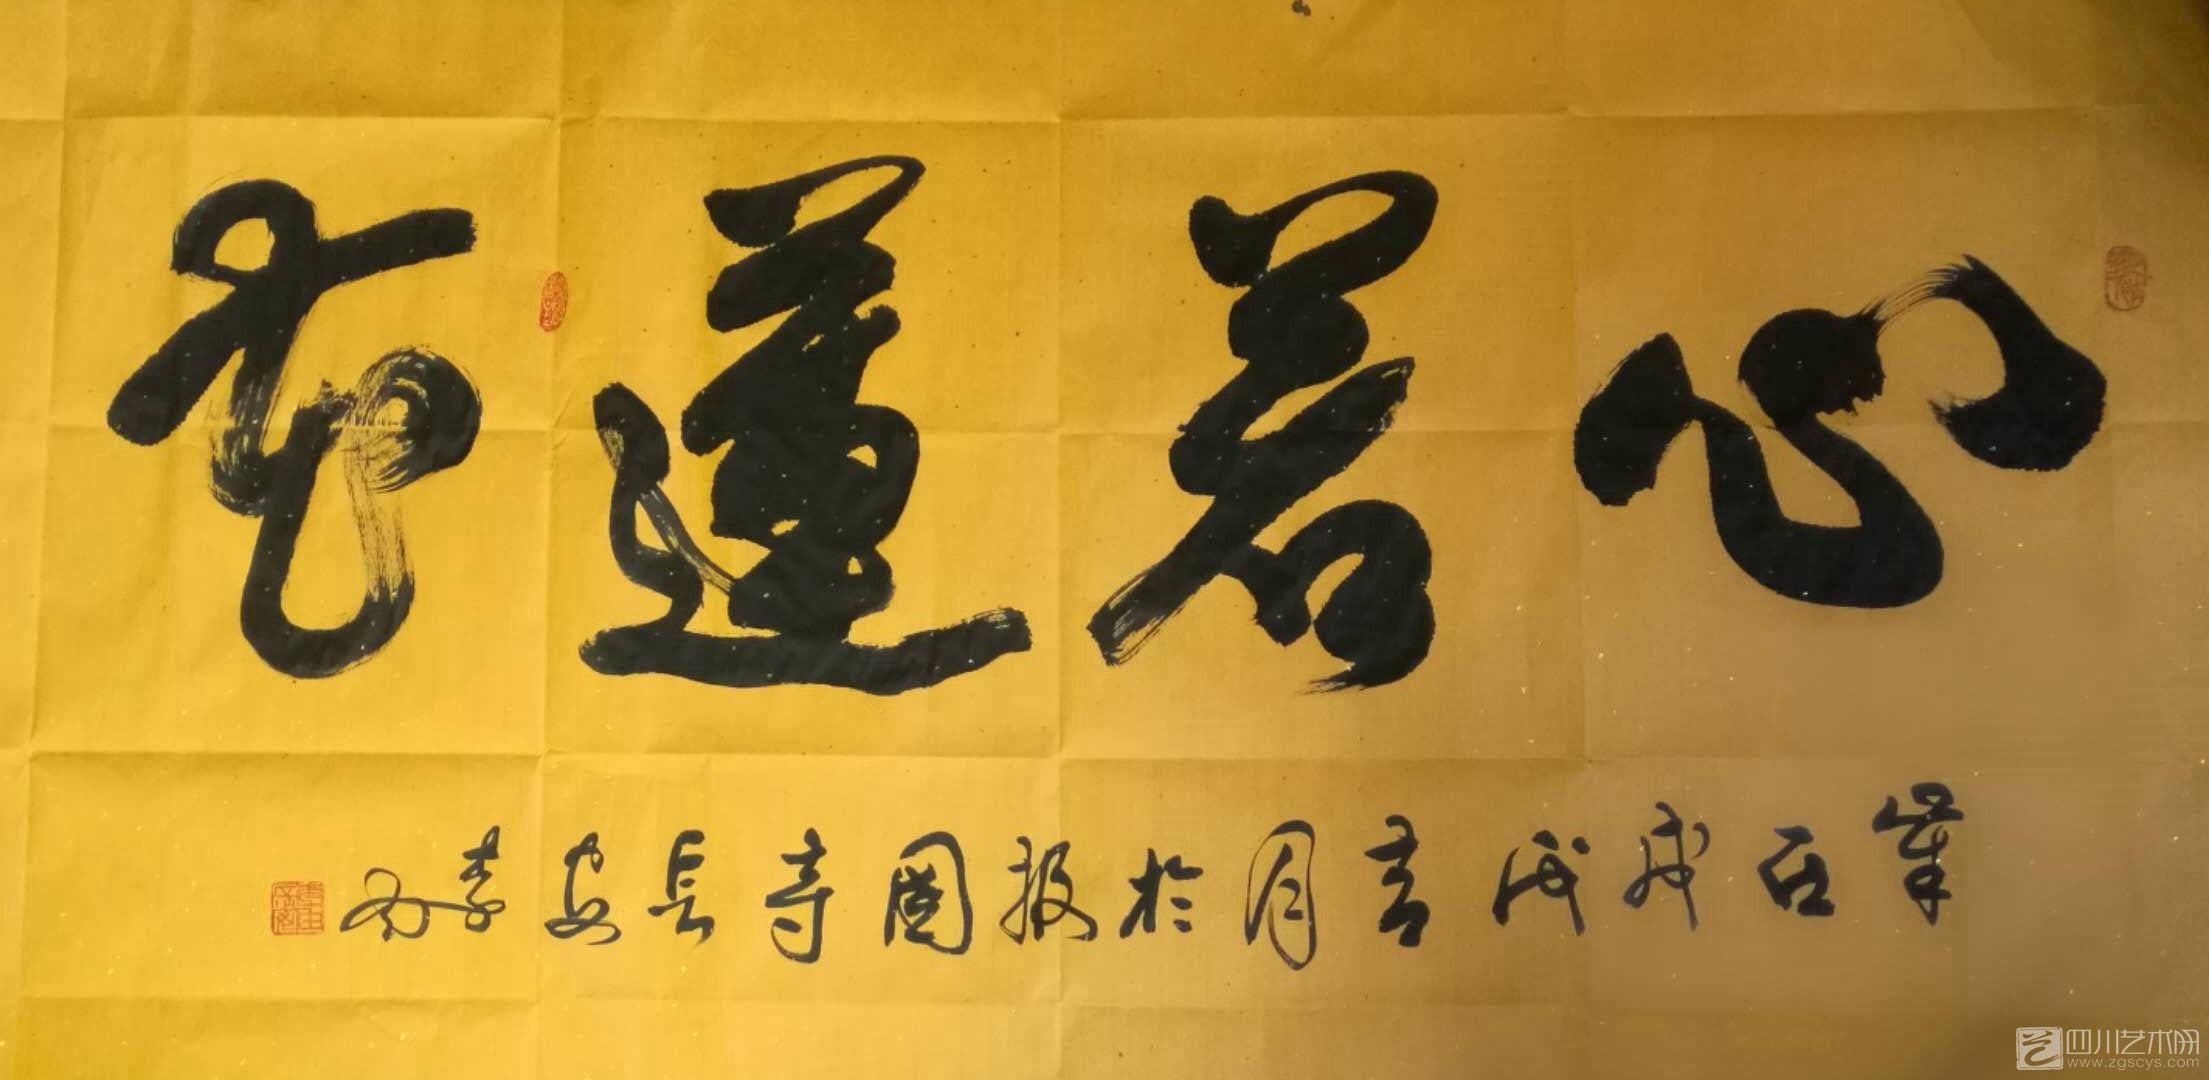 心若莲花
岁在戊戌吉月于报国寺长安李
四川艺术网
www.zgscys.com